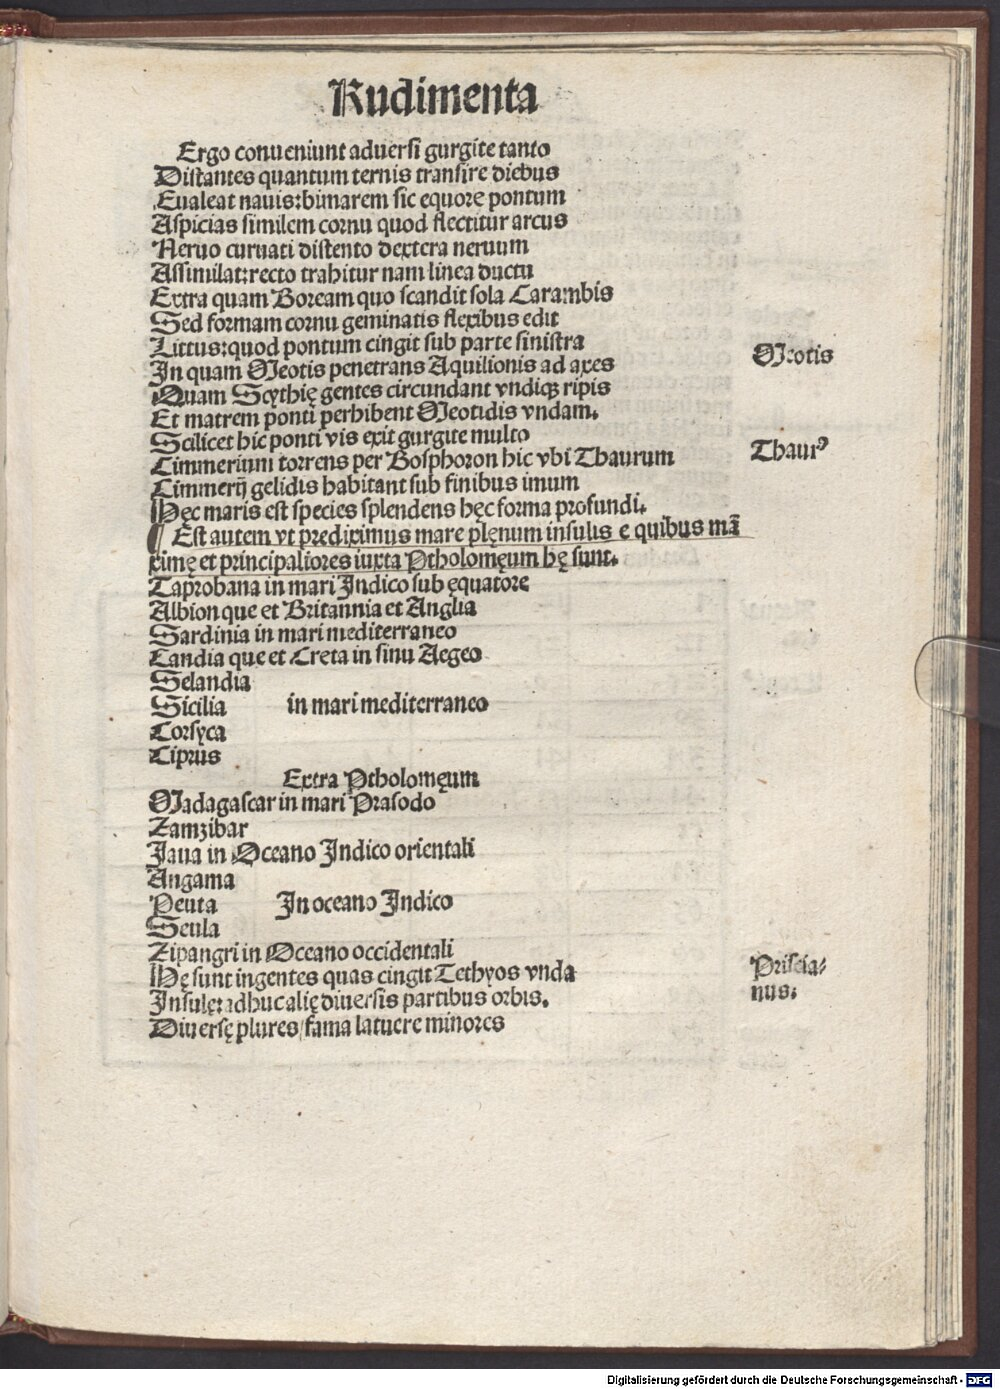 Rudimenta
Ergo conueniunt aduersi gurgite tanto
Distantes quantum ternis transire diebus
Eualeat nauis:bimarem sic equore pontum
Aspicias similem cornu quod flectitur arcus
Neruo curuati distento dextera neruum
Assimilat:recto trahitur nam linea ductu
Extra quam Boream quo scandit sola Carambis
Sed formam cornu geminatis flexibus edit
Littus:quod pontum cingit sub parte sinistra
In quam Meotis penetrans Aquilionis ad axes
Meotis
Quam Scythię gentes circundant vndiqꝫ ripis
Et matrem ponti perhibent Meotidis vndam.
Scilicet hic ponti vis exit gurgite multo
Cimmerium torrens per Bosphoron hic vbi Thaurum
Thaurꝰ
Cimmerij gelidis habitant sub finibus imum
Hęc maris est species splendens hęc forma profundi.
¶ Est autem vt prediximus mare plęnum insulis e quibus ma̅
ximę et principaliores iuxta Ptholomęum hę sunt.
Taprobana in mari Indico sub ęquatore
Albion que et Britannia et Anglia
Sardinia in mari mediterraneo
Candia que et Creta in sinu Aegeo
Selandia
Sicilia in mari mediterraneo
Corsyca
Ciprus
Extra Ptholomęum
Madagascar in mari Prasodo
Zamzibar
Iaua in Oceano Indico orientali
Angama
Peuta In oceano Indico
Seula
Zipangri in Oceano occidentali
Hę sunt ingentes quas cingit Tethyos vnda
Priscia/
nus.
Insulę:adhuc alię diuersis partibus orbis.
Diuersę plures/fama latuere minores
Digitalisierung gefördert durch die Deutsche Forschungsgemeinschaft - DFG